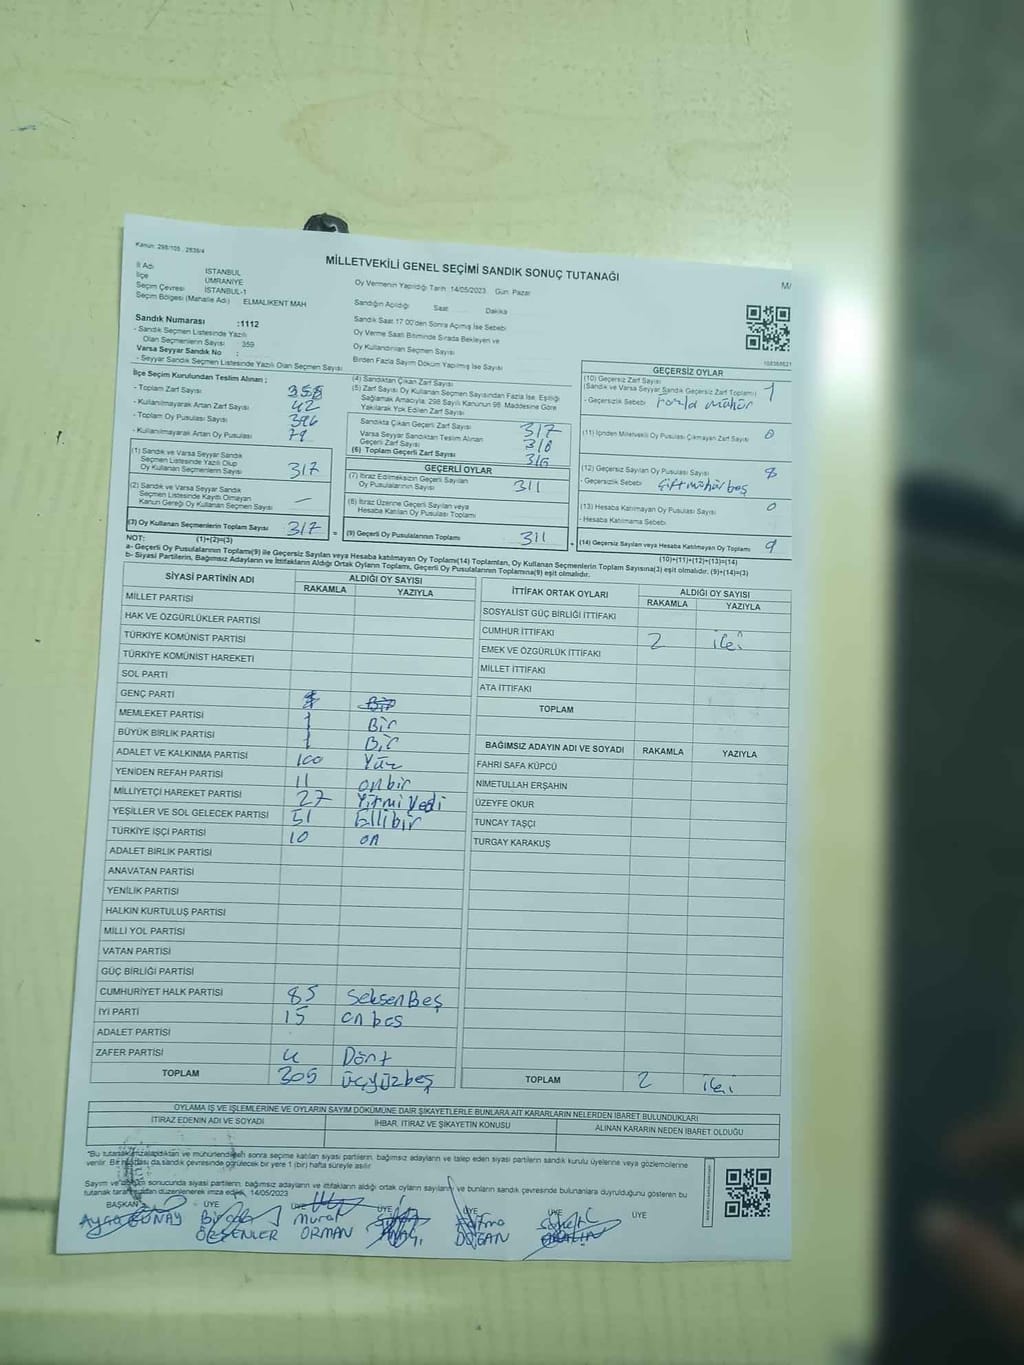 Kanun: 298/105 , 2839/4
MİLLETVEKİLİ GENEL SEÇİMİ SANDIK SONUÇ TUTANAĞI
M/
İl Adı İSTANBUL
İlçe ÜMRANİYE
Seçim Çevresi İSTANBUL-1
Seçim Bölgesi (Mahalle Adı) ELMALIKENT MAH
Oy Vermenin Yapıldığı Tarih :14/05/2023 Gün: Pazar
Sandığın Açıldığı Saat Dakika
Sandık Saat 17 00'den Sonra Açımış İse Sebebi
Oy Verme Saati Bitiminde Sırada Bekleyen ve
Oy Kullandırılan Seçmen Sayısı
Birden Fazla Sayım Döküm Yapılmış İse Sayısı
Sandık Numarası :1112
- Sandık Seçmen Listesinde Yazılı
Olan Seçmenlerin Sayısı 359
Varsa Seyyar Sandık No :
- Seyyar Sandık Seçmen Listesinde Yazılı Olan Seçmen Sayısı
İlçe Seçim Kurulundan Teslim Alınan ;
- Toplam Zarf Sayısı 358
- Kullanılmayarak Artan Zarf Sayısı 42
- Toplam Oy Pusulası Sayısı 396
- Kullanılmayarak Artan Oy Pusulası 79
(1) Sandık ve Varsa Seyyar Sandık
Seçmen Listesinde Yazılı Olup
Oy Kullanan Seçmenlerin Sayısı 317
(2) Sandık ve Varsa Seyyar Sandık
Seçmen Listesinde Kayıtlı Olmayan
Kanun Gereği Oy Kullanan Seçmen Sayısı —
(3) Oy Kullanan Seçmenlerin Toplam Sayısı 317 =
(4) Sandıktan Çıkan Zarf Sayısı
(5) Zarf Sayısı Oy Kullanan Seçmen Sayısından Fazla İse, Eşitliği
Sağlamak Amacıyla, 298 Sayılı Kanunun 98. Maddesine Göre
Yakılarak Yok Edilen Zarf Sayısı
Sandıkta Çıkan Geçerli Zarf Sayısı 317
Varsa Seyyar Sandıktan Teslim Alınan
Geçerli Zarf Sayısı
(6) Toplam Geçerli Zarf Sayısı 316
GEÇERLİ OYLAR
(7) İtiraz Edilmeksizin Geçerli Sayılan
Oy Pusulalarının Sayısı 311
(8) İtiraz Üzerine Geçerli Sayılan veya
Hesaba Katılan Oy Pusulası Toplamı
(9) Geçerli Oy Pusulalarının Toplamı 311 +
GEÇERSİZ OYLAR
(10) Geçersiz Zarf Sayısı
(Sandık ve Varsa Seyyar Sandık Geçersiz Zarf Toplamı) 1
- Geçersizlik Sebebi fazla mühür
(11) İçinden Milletvekili Oy Pusulası Çıkmayan Zarf Sayısı 0
(12) Geçersiz Sayılan Oy Pusulası Sayısı 8
- Geçersizlik Sebebi Çift mühür boş
(13) Hesaba Katılmayan Oy Pusulası Sayısı 0
- Hesaba Katılmama Sebebi
(14) Geçersiz Sayılan veya Hesaba Katılmayan Oy Toplamı 9
NOT: (1)+(2)=(3) (10)+(11)+(12)+(13)=(14)
a- Geçerli Oy Pusulalarının Toplamı(9) ile Geçersiz Sayılan veya Hesaba katılmayan Oy Toplamı(14) Toplamları, Oy Kullanan Seçmenlerin Toplam Sayısına(3) eşit olmalıdır. (9)+(14)=(3)
b- Siyasi Partilerin, Bağımsız Adayların ve İttifakların Aldığı Ortak Oyların Toplamı, Geçerli Oy Pusulalarının Toplamına(9) eşit olmalıdır.
SİYASİ PARTİNİN ADI ALDIĞI OY SAYISI
RAKAMLA YAZIYLA
MİLLET PARTİSİ
HAK VE ÖZGÜRLÜKLER PARTİSİ
TÜRKİYE KOMÜNİST PARTİSİ
TÜRKİYE KOMÜNİST HAREKETİ
SOL PARTİ
GENÇ PARTİ
MEMLEKET PARTİSİ 1 Bir
BÜYÜK BİRLİK PARTİSİ 1 Bir
ADALET VE KALKINMA PARTİSİ 100 Yüz
YENİDEN REFAH PARTİSİ 11 onbir
MİLLİYETÇİ HAREKET PARTİSİ 27 Yirmi Yedi
YEŞİLLER VE SOL GELECEK PARTİSİ 51 Ellibir
TÜRKİYE İŞÇİ PARTİSİ 10 on
ADALET BİRLİK PARTİSİ
ANAVATAN PARTİSİ
YENİLİK PARTİSİ
HALKIN KURTULUŞ PARTİSİ
MİLLİ YOL PARTİSİ
VATAN PARTİSİ
GÜÇ BİRLİĞİ PARTİSİ
CUMHURİYET HALK PARTİSİ 85 SeksenBeş
İYİ PARTİ 15 onbeş
ADALET PARTİSİ
ZAFER PARTİSİ 4 Dört
TOPLAM 305 üçyüzbeş
İTTİFAK ORTAK OYLARI ALDIĞI OY SAYISI
RAKAMLA YAZIYLA
SOSYALİST GÜÇ BİRLİĞİ İTTİFAKI
CUMHUR İTTİFAKI 2 iki
EMEK VE ÖZGÜRLÜK İTTİFAKI
MİLLET İTTİFAKI
ATA İTTİFAKI
TOPLAM
BAĞIMSIZ ADAYIN ADI VE SOYADI RAKAMLA YAZIYLA
FAHRİ SAFA KÜPCÜ
NİMETULLAH ERŞAHİN
ÜZEYFE OKUR
TUNCAY TAŞÇI
TURGAY KARAKUŞ
TOPLAM 2 iki
OYLAMA İŞ VE İŞLEMLERİNE VE OYLARIN SAYIM DÖKÜMÜNE DAİR ŞİKAYETLERLE BUNLARA AİT KARARLARIN NELERDEN İBARET BULUNDUKLARI
İTİRAZ EDENİN ADI VE SOYADI İHBAR, İTİRAZ VE ŞİKAYETİN KONUSU ALINAN KARARIN NEDEN İBARET OLDUĞU
*Bu tutanak imzalandıktan ve mühürlendikten sonra seçime katılan siyasi partilerin, bağımsız adayların ve talep eden siyasi partilerin sandık kurulu üyelerine veya gözlemcilerine
verilir. Bir sandık çevresinde görülecek bir yere 1 (bir) hafta süreyle asılır
Sayım ve döküm sonucunda siyasi partilerin, bağımsız adayların ve ittifakların aldığı ortak oyların sayıları ve bunların sandık çevresinde bulunanlara duyrulduğunu gösteren bu
tutanak tarafımızdan düzenlenerek imza edildi. 14/05/2023
BAŞKAN ÜYE ÜYE ÜYE ÜYE ÜYE
GÜNAY Murat Fatma
ÖZŞENLER ORMAN DOĞAN